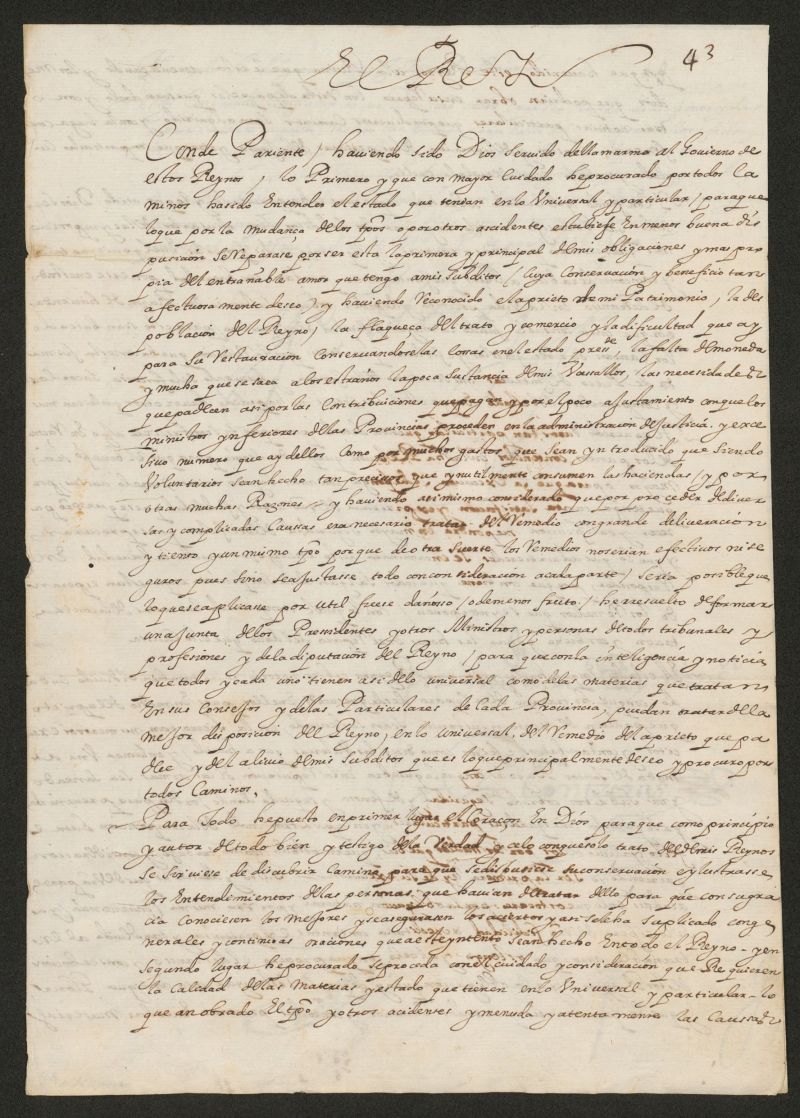 43
El Rey
Conde Pariente, haviendo sido Dios servido dellamarme al Govierno de
estos Reynos, lo Primero y que con mayor Cuidado he procurado por todos Ca
minos ha sido Entender el estado que tenian en lo Universal y particular, para que
lo que por la mudança delos tpos o por otros accidentes estubiese En menos buena dis
pusicion se reparase por ser esta la primera y principal de mis obligaciones y mas pro
pia del entrañable amor que tengo a mis subditos, (cuya Conservacion y beneficio tan
afectuosamente deseo), y haviendo reconocido el aprieto de mi Patrimonio, la des
poblacion del Reyno, la flaqueça del trato y comercio y la dificultad que ay
para su restauracion Conservandose las Cosas en el estado preste, la falta de moneda
y mucho que se saca a los estraños la poca sustancia de mis Vasallos, las necesidades
que padecen asi por las Contribuiciones que pagan y por el poco ajustamiento con que los
ministros ynferiores delas Provincias proceden en la administracion de Justicia, y exce
sivo numero que ay dellos como por muchos gastos que sean yntroducido que siendo
Voluntarios sean hecho tan precisos que ynutilmente consumen las haciendas, y por
otras muchas Razones, y haviendo asimismo considerado que por proceder de diver
sas y complicadas Caussas era necesario tratar del remedio con grande deliveracion
y tiento y a un mismo tpo porque de otra suerte los remedios no serian efectivos ni se
guros pues sino se ajustasse todo con consideracion a cada parte, seria posible que
lo que se aplicasse por util fuese dañoso, o de menos fruto, he resuelto de formar
una Junta delos Pressidentes y otros Ministros y personas de todos tribunales y
profesiones y dela diputacion del Reyno, para que con la inteligencia y noticia
que todos y cada uno tienen asi delo universal como delas materias que tratan
En sus Consejos y delas Particulares de Cada Provincia, puedan tratar dela
mejor disposicion del Reyno, en lo universal, del remedio del aprieto que pa
dece y del alivio de mis subditos que es lo que principalmente deseo y procuro por
todos Caminos.
Para Todo he puesto en primer lugar el Coraçon En Dios para que como principio
y autor de todo bien y testigo dela Verdad y celo con que solo trato del de mis Reynos
se sirviese de discubrir Camino para que se dispusiese su conservacion e ylustrasse
los Entendimientos delas personas que havian de tratar dello para que con su gra
cia Conociesen los mejores y se asegurasen los aciertos y asi se le ha suplicado con ge
nerales y continuas oraciones que a este yntento sean hecho En todo el Reyno - y en
segundo lugar he procurado se proceda con el cuidado y consideracion que Requieren
la Calidad delas Materias y estado que tienen en lo Universal y particular - lo
que an obrado El tpo y otros acidentes y menuda y atentamente las Caussas de